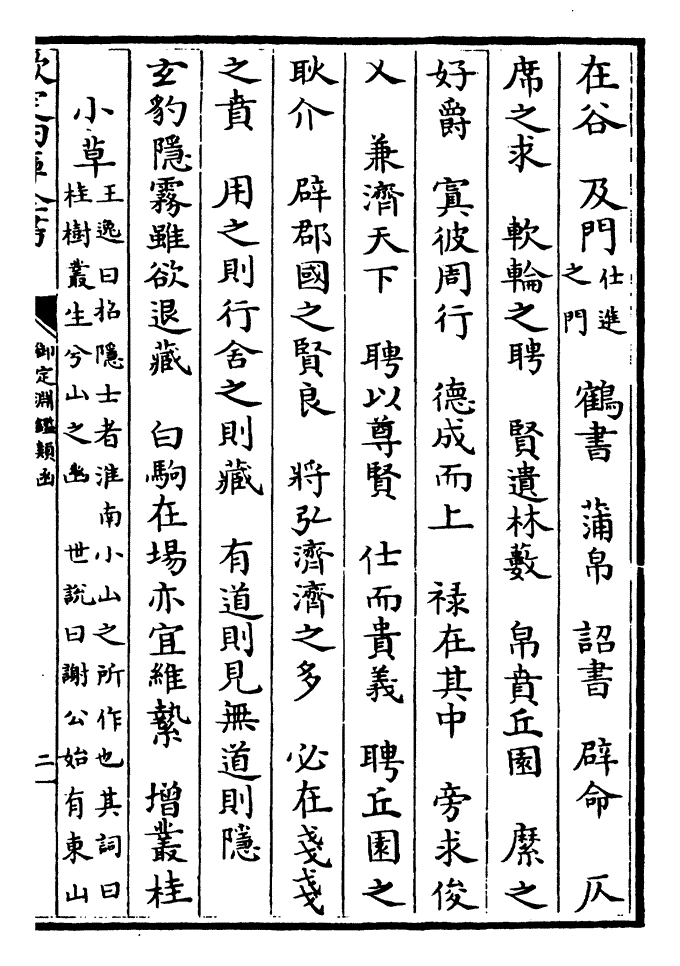 在谷　及門仕進之門　鶴書　蒲帛　詔書　辟命　仄
席之求　軟輪之聘　賢遺林藪　帛賁丘園　縻之
好爵　寘彼周行　德成而上　祿在其中　旁求俊
乂　兼濟天下　聘以尊賢　仕而貴義　聘丘園之
耿介　辟郡國之賢良　將弘濟濟之多　必在戔戔
之賁　用之則行舍之則藏　有道則見無道則隱
玄豹隱霧雖欲退藏　白駒在場亦宜維縶　增叢桂
小草王逸曰招隱士者淮南小山之所作也其詞曰
桂樹叢生兮山之幽　世說曰謝公始有東山
御定淵鑑類函
二